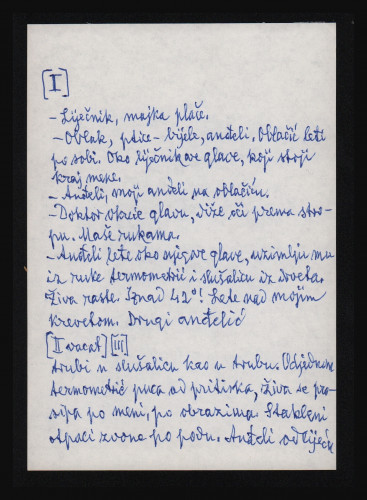 [I]
- Liječnik, majka plače.
- Oblak, ptice - bijele, anđeli. Oblačić leti
po sobi. Oko liječnikove glave, koji stoji
kraj mene.
- Anđeli, moji anđeli na oblačiću.
- Doktor okreće glavu, diže oči prema stro-
pu. Maše rukama.
- Anđeli lete oko njegove glave, uzimlju mu
iz ruke termometrić i slušalicu iz drveta.
Živa raste. Iznad 42°! Lete nad mojim
krevetom. Drugi anđelić
[II vacat] [III]
trubi u slušalicu kao u trubu. Odjednom
termometrić puca od pritiska, živa se pro-
sipa po meni, po obrazima. Stakleni
otpaci zvone po podu. Anđeli od liječn